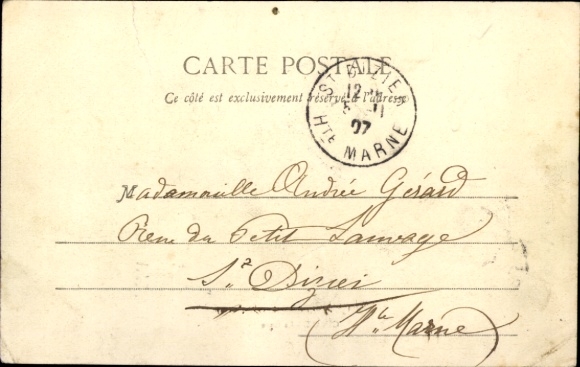 CARTE POSTALE
Ce côté est exclusivement réservé à l'adresse
ST DIZIER
12
11
07
HTE MARNE
Mademoiselle Andrée Gérard
Rue du Petit Lauvage
St Dizier
Hte Marne